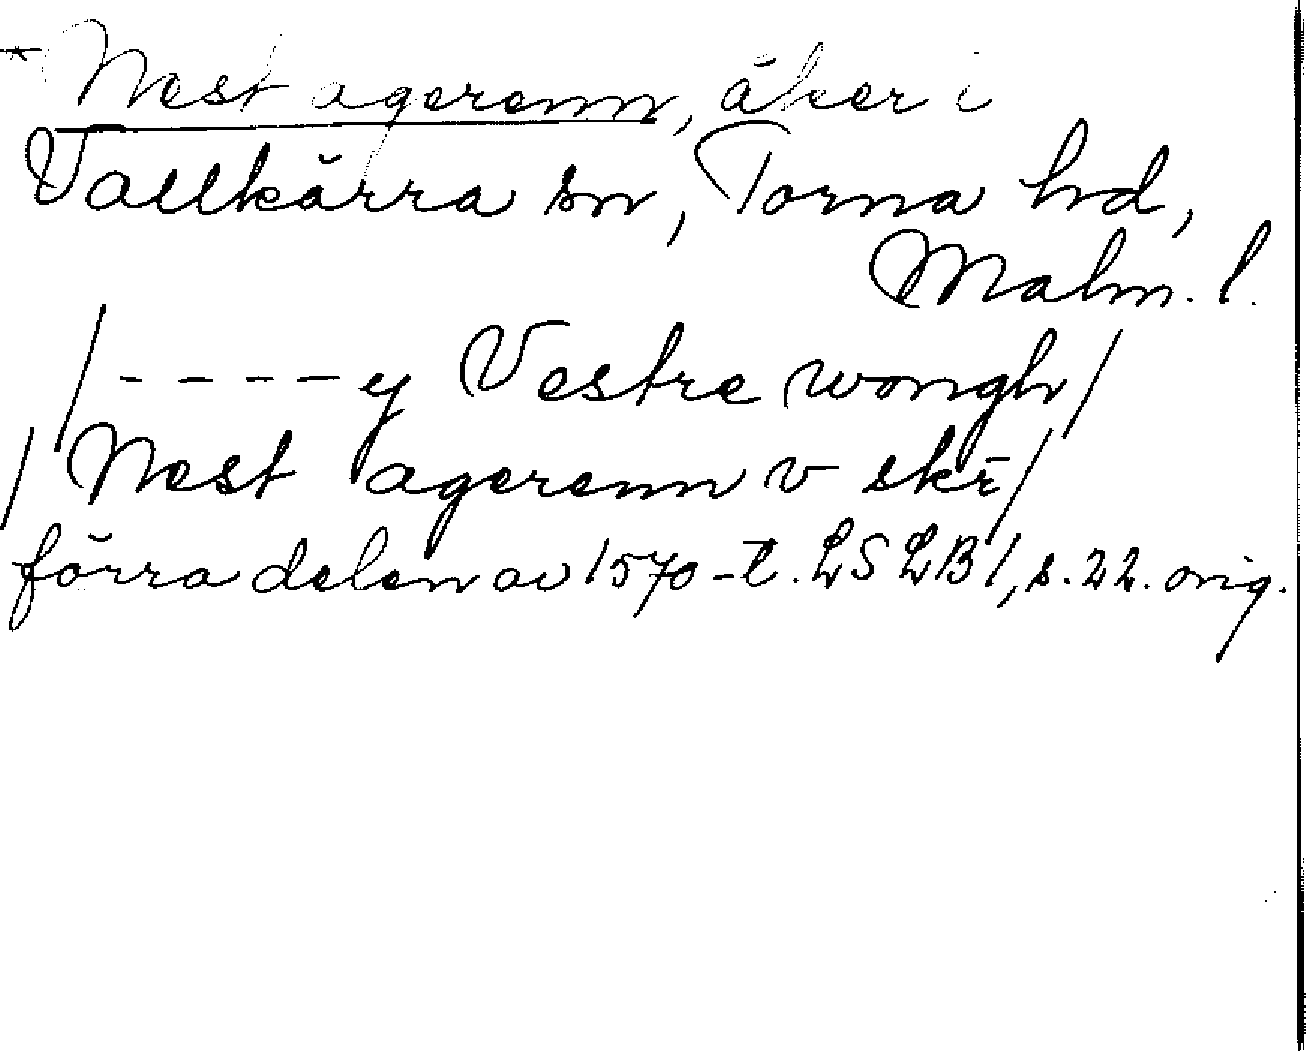 * Nest agerenn, åker i
Vallkärra sn, Torna hd,
Malm. l.
/ - - - - y Vestre wongh /
/ Nest agerenn v skē /
förra delen av 1570-t. LSLB 1, s. 22. orig.